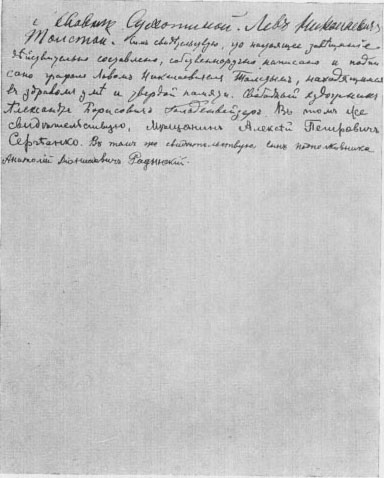 Львовне Сухотиной. Левъ Николаевичъ
Толстой. Симъ свидѣтельствую, что настоящее завѣщаніе
дѣйствительно составлено, собственноручно написано и подпи
сано графомъ Львомъ Николаевичемъ Толстымъ, находящимся
въ здравомъ умѣ и твердой памяти. Свободный художникъ
Александръ Борисовичъ Гольденвейзеръ. Въ томъ же
свидѣтельствую, мѣщанинъ Алексѣй Петровичъ
Сергѣенко. Въ томъ же свидѣтельствую сынъ подполковника
Анатолій Діонисіевичъ Радынскій.